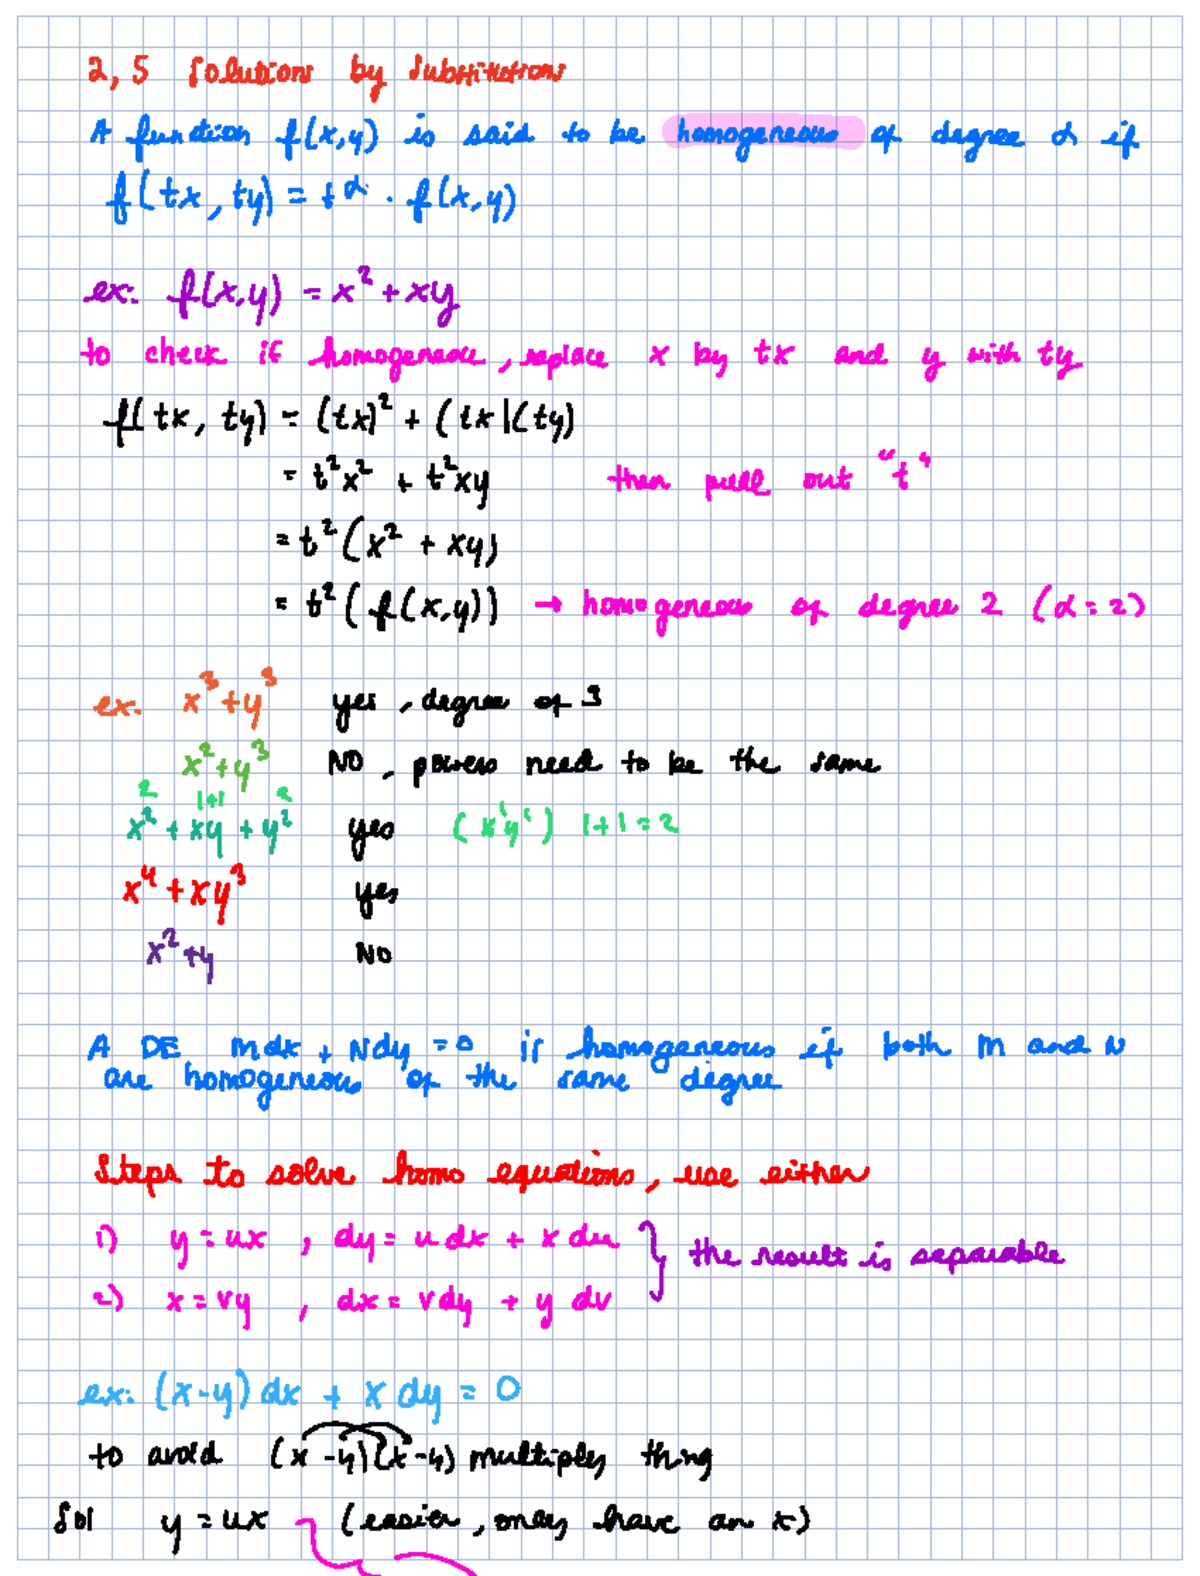 2,5 Solutions by Substitutions
A function f(x,y) is said to be homogeneous of degree α if
f(tx, ty) = t^α · f(x,y)
ex: f(x,y) = x² + xy
to check if homogeneous, replace x by tx and y with ty
f(tx, ty) = (tx)² + (tx)(ty)
= t²x² + t²xy then pull out "t"
= t²(x² + xy)
= t²(f(x,y)) → homogeneous of degree 2 (α = 2)
ex. x³ + y³ yes, degree of 3
x² + y³ NO, powers need to be the same
2 1+1 2
x² + xy + y² yes (x¹y¹) 1+1=2
x⁴ + xy³ yes
x² + y NO
A DE Mdx + Ndy = 0 is homogeneous if both M and N
are homogeneous of the same degree
Steps to solve homo equations, use either
1) y = ux, dy = u dx + x du } the result is separable
2) x = vy, dx = vdy + y dv
ex: (x-y) dx + x dy = 0
to avoid (x-y)(x-y) multiply thing
Sol y = ux (easier, only have an x)